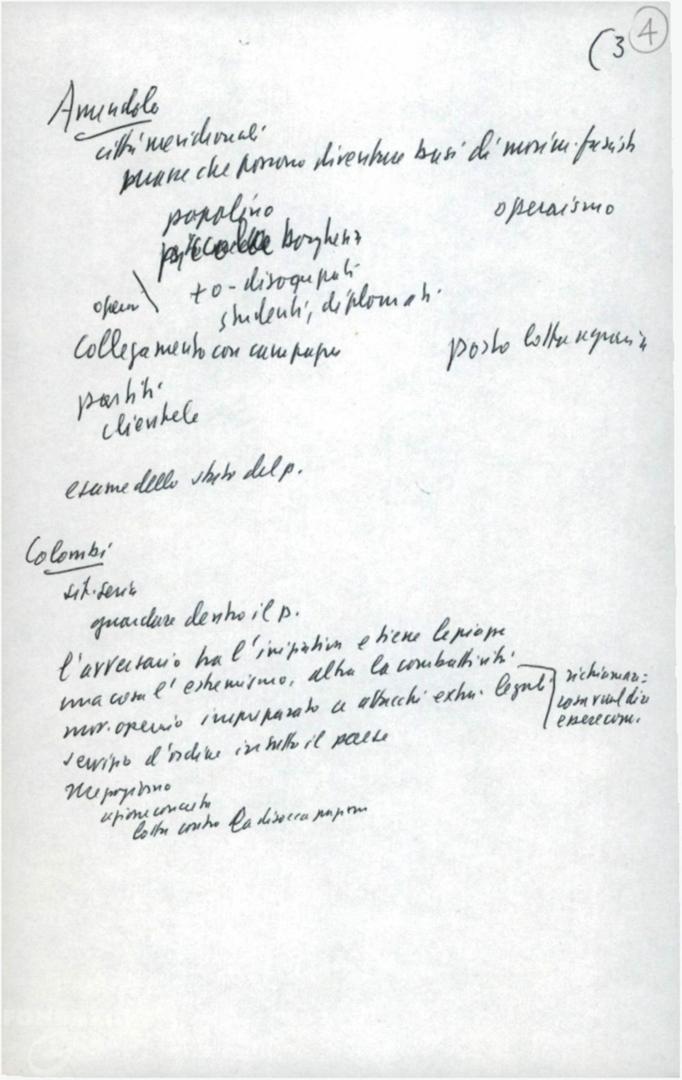 (3 4
Amendola
città meridionali
piazze che possono diventare basi di movim. fascisti
popolino operaismo
piccola borghesia
operai + o - disoqupati
studenti, diplomati
Collegamento con campagne posto lotta agraria
partiti
clientele
esame dello stato del p.
Colombi
sit. seria
guardare dentro il p.
l'avversario ha l'iniziativa e tiene le piazze
una cosa l'estremismo, altra la combattività
mov. operaio impreparato a attacchi extra-legali richiamare:
cosa vuol dire
essere com.
servizio d'ordine in tutto il paese
Mezzogiorno
azione concreta
lotta contro la disoccupazione